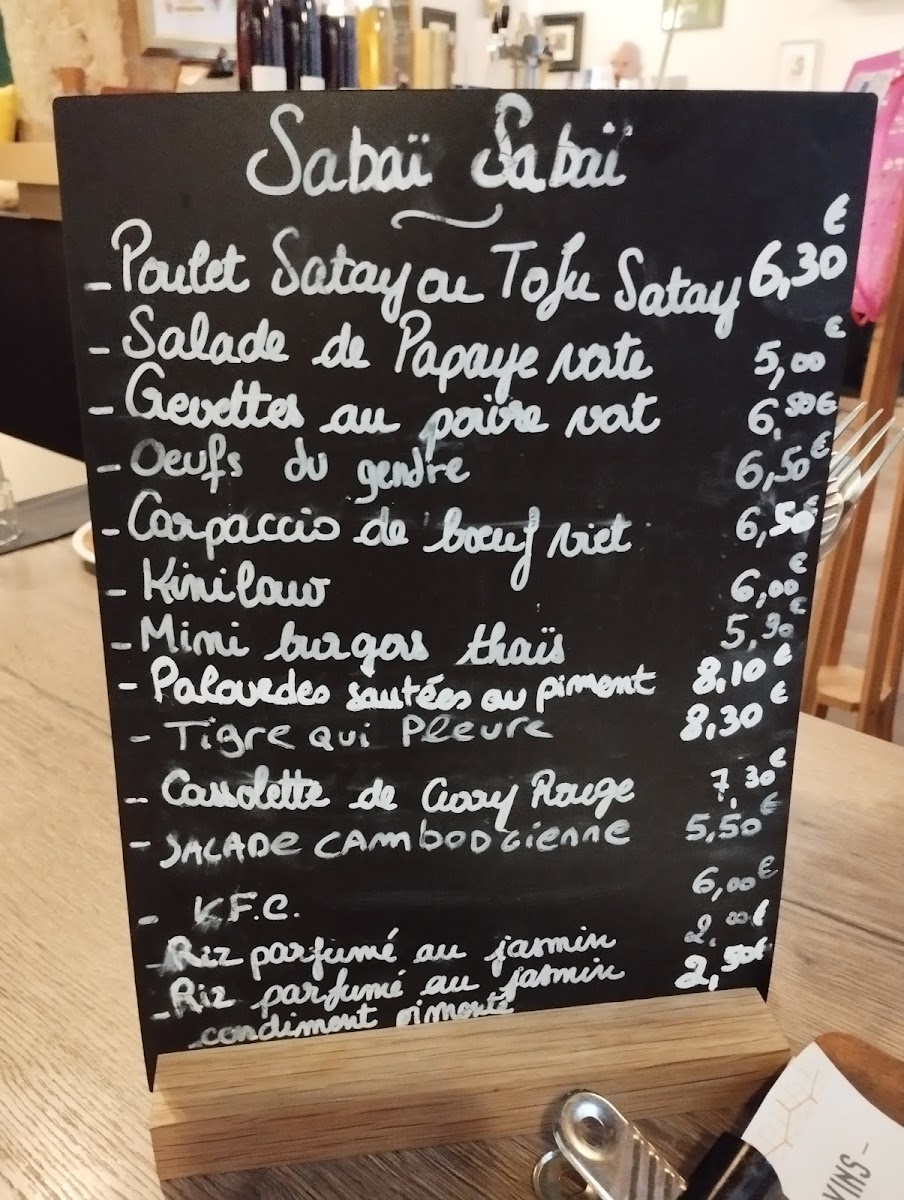 Sabaï Sabaï
- Poulet Satay ou Tofu Satay 6,30 €
- Salade de Papaye verte 5,00 €
- Crevettes au poivre vert 6,50 €
- Oeufs du gendre 6,50 €
- Carpaccio de boeuf viet 6,50 €
- Kinilaw 6,00 €
- Mini burgers thaïs 5,90 €
- Palourdes sautées au piment 8,10 €
- Tigre qui Pleure 8,30 €
- Cassolette de Curry Rouge 7,30 €
- SALADE CAMBODGIENNE 5,50 €
- K.F.C. 6,00 €
- Riz parfumé au jasmin 2,00 €
- Riz parfumé au jasmin 2,50 €
condiment pimenté